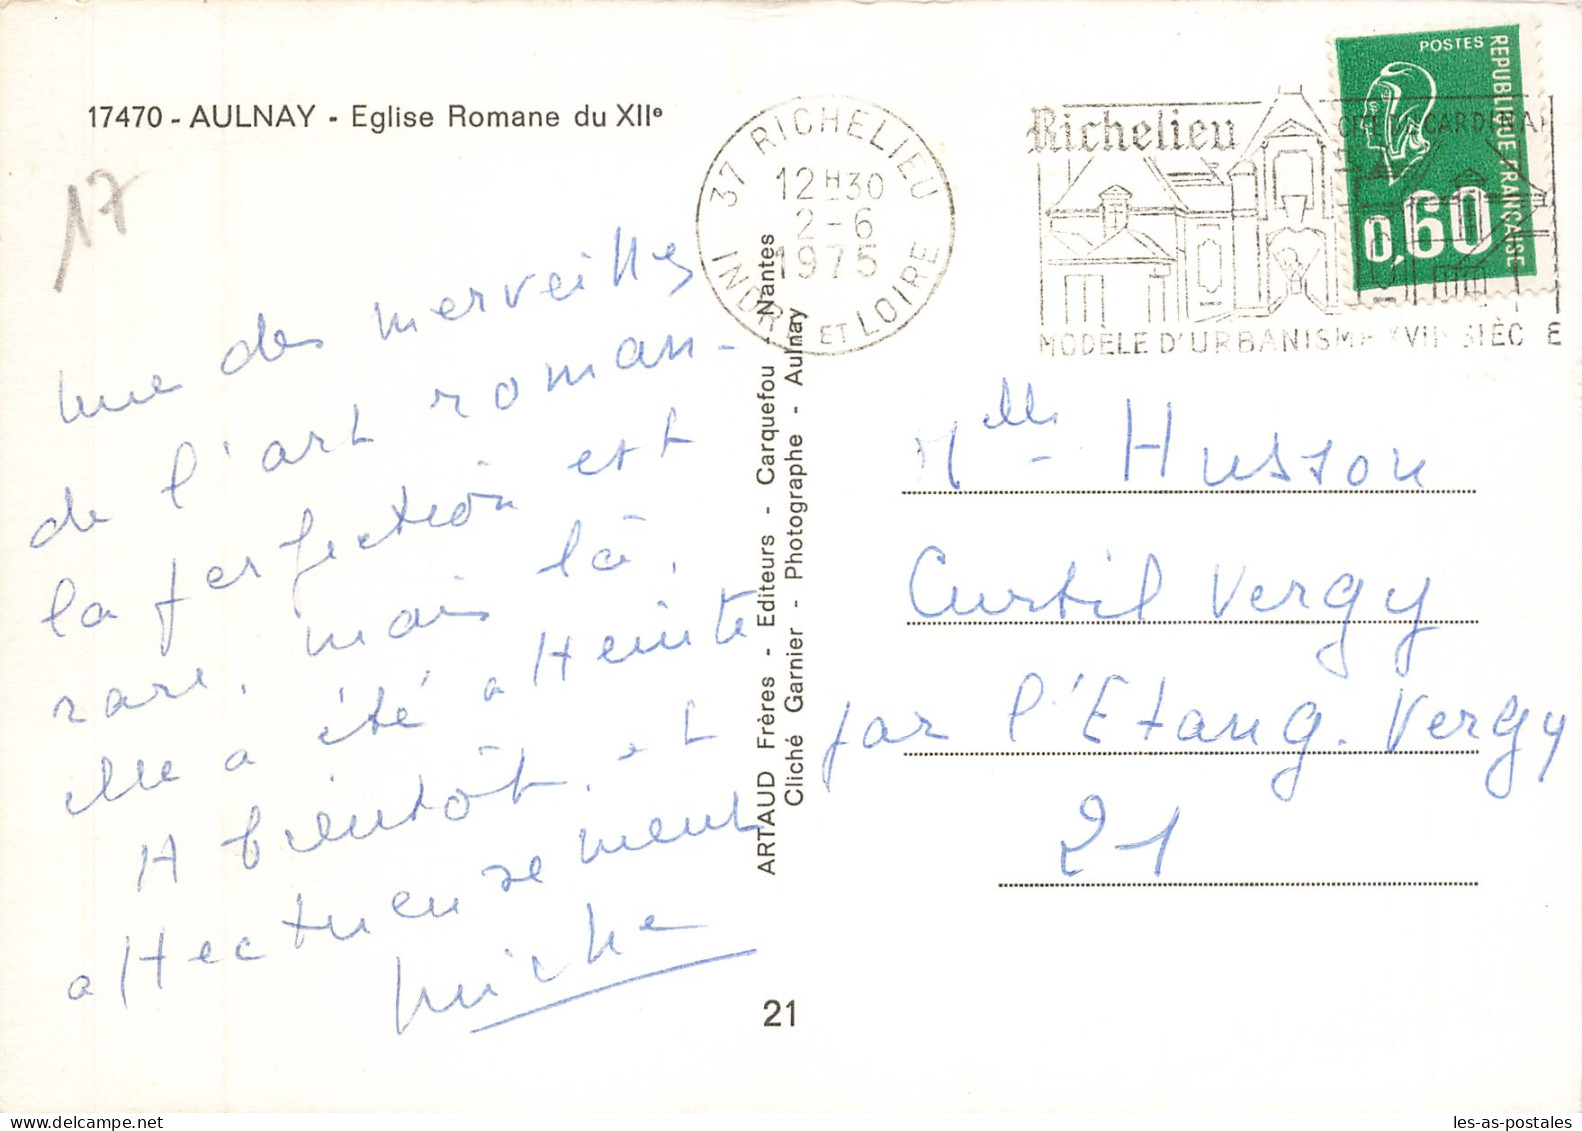 17470 - AULNAY - Eglise Romane du XIIe
17
une des merveilles
de l'art roman -
la perfection est
rare, mais là,
elle a été atteinte
A bientôt, et
affectueusement
37 RICHELIEU
12H30
2-6
1975
INDRE ET LOIRE
Richelieu
CITÉ DU CARDINAL
MODÈLE D'URBANISME XVIIe SIÈCLE
POSTES
REPUBLIQUE FRANÇAISE
0,60
ARTAUD Frères - Editeurs - Carquefou - Nantes
Cliché Garnier - Photographe - Aulnay
Melle Husson
Curtil Vergy
par l'Etang. Vergy
21
21
les-as-postales